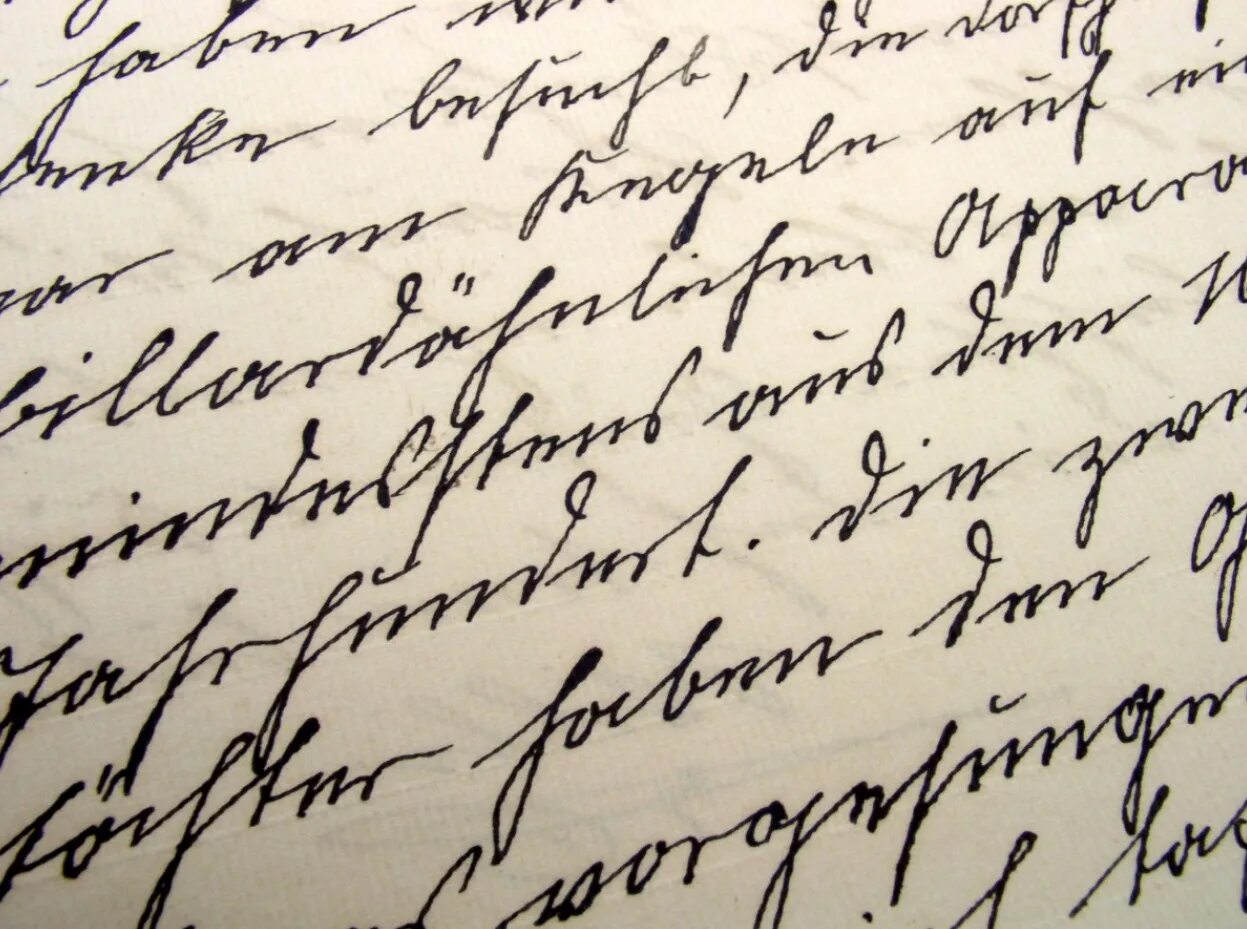 haben
besucht, die
war am Kegeln auf
billardähnlichen Appara
mindestens aus dem
Jahrhundert. Die zwe
töchter haben den
vorgesungen